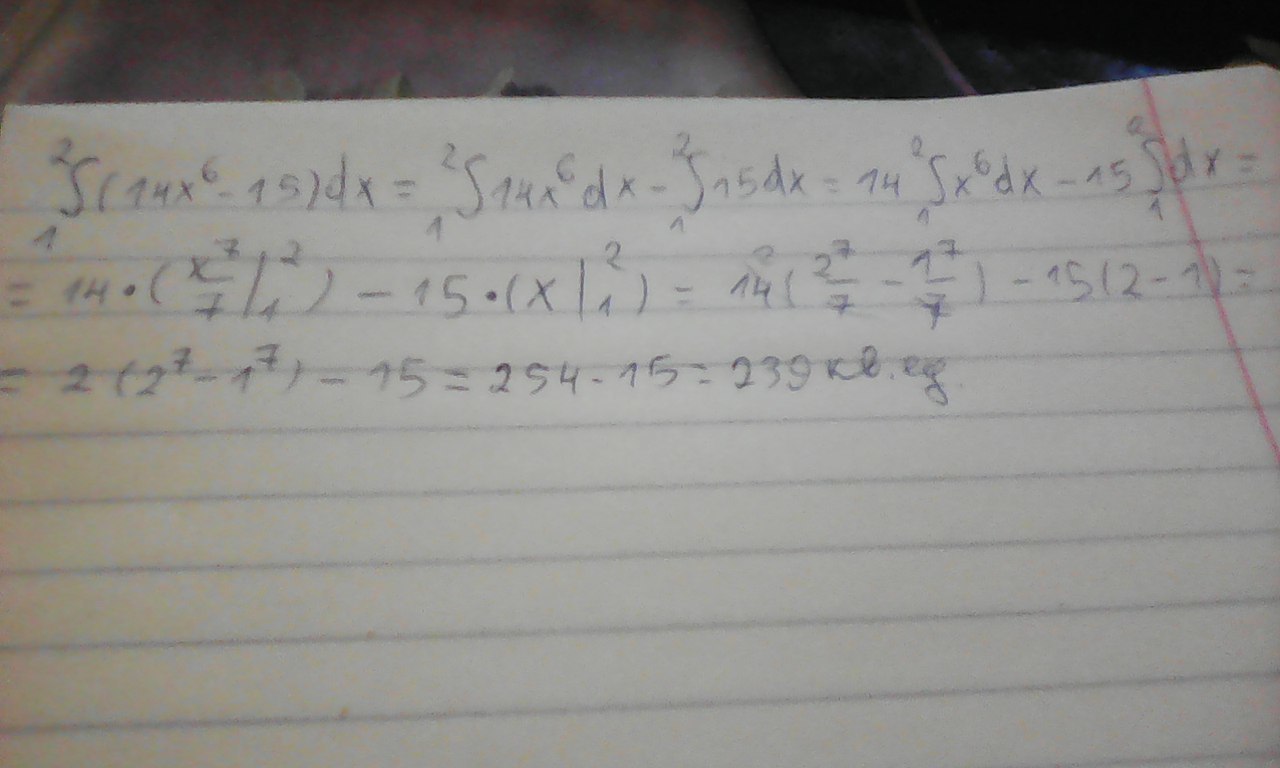 ₁²∫(14x⁶-15)dx = ₁²∫14x⁶dx - ₁²∫15dx = 14 ₁²∫x⁶dx - 15 ₁²∫dx =
= 14·(x⁷/7|₁²) - 15·(x|₁²) = 14(2⁷/7 - 1⁷/7) - 15(2-1) =
= 2(2⁷-1⁷) - 15 = 254-15 = 239 кв.ед.